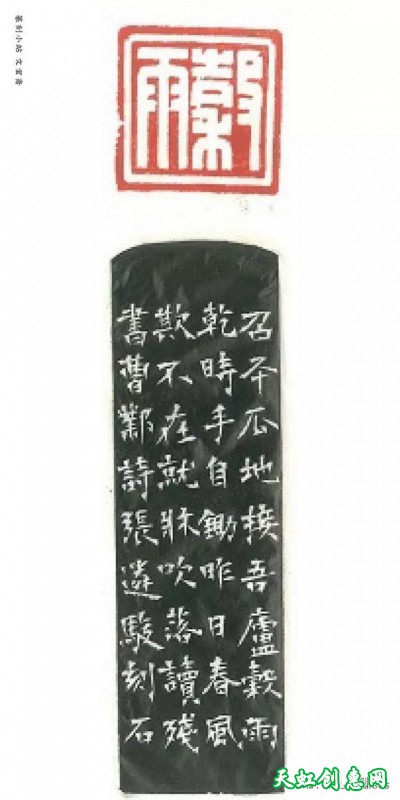 篆刻小站 文宝斋
穀雨
召平瓜地接吾廬穀雨
乾時手自鋤昨日春風
欺不在就牀吹落讀殘
書曹鄴詩張遴駿刻石
天虹创意网